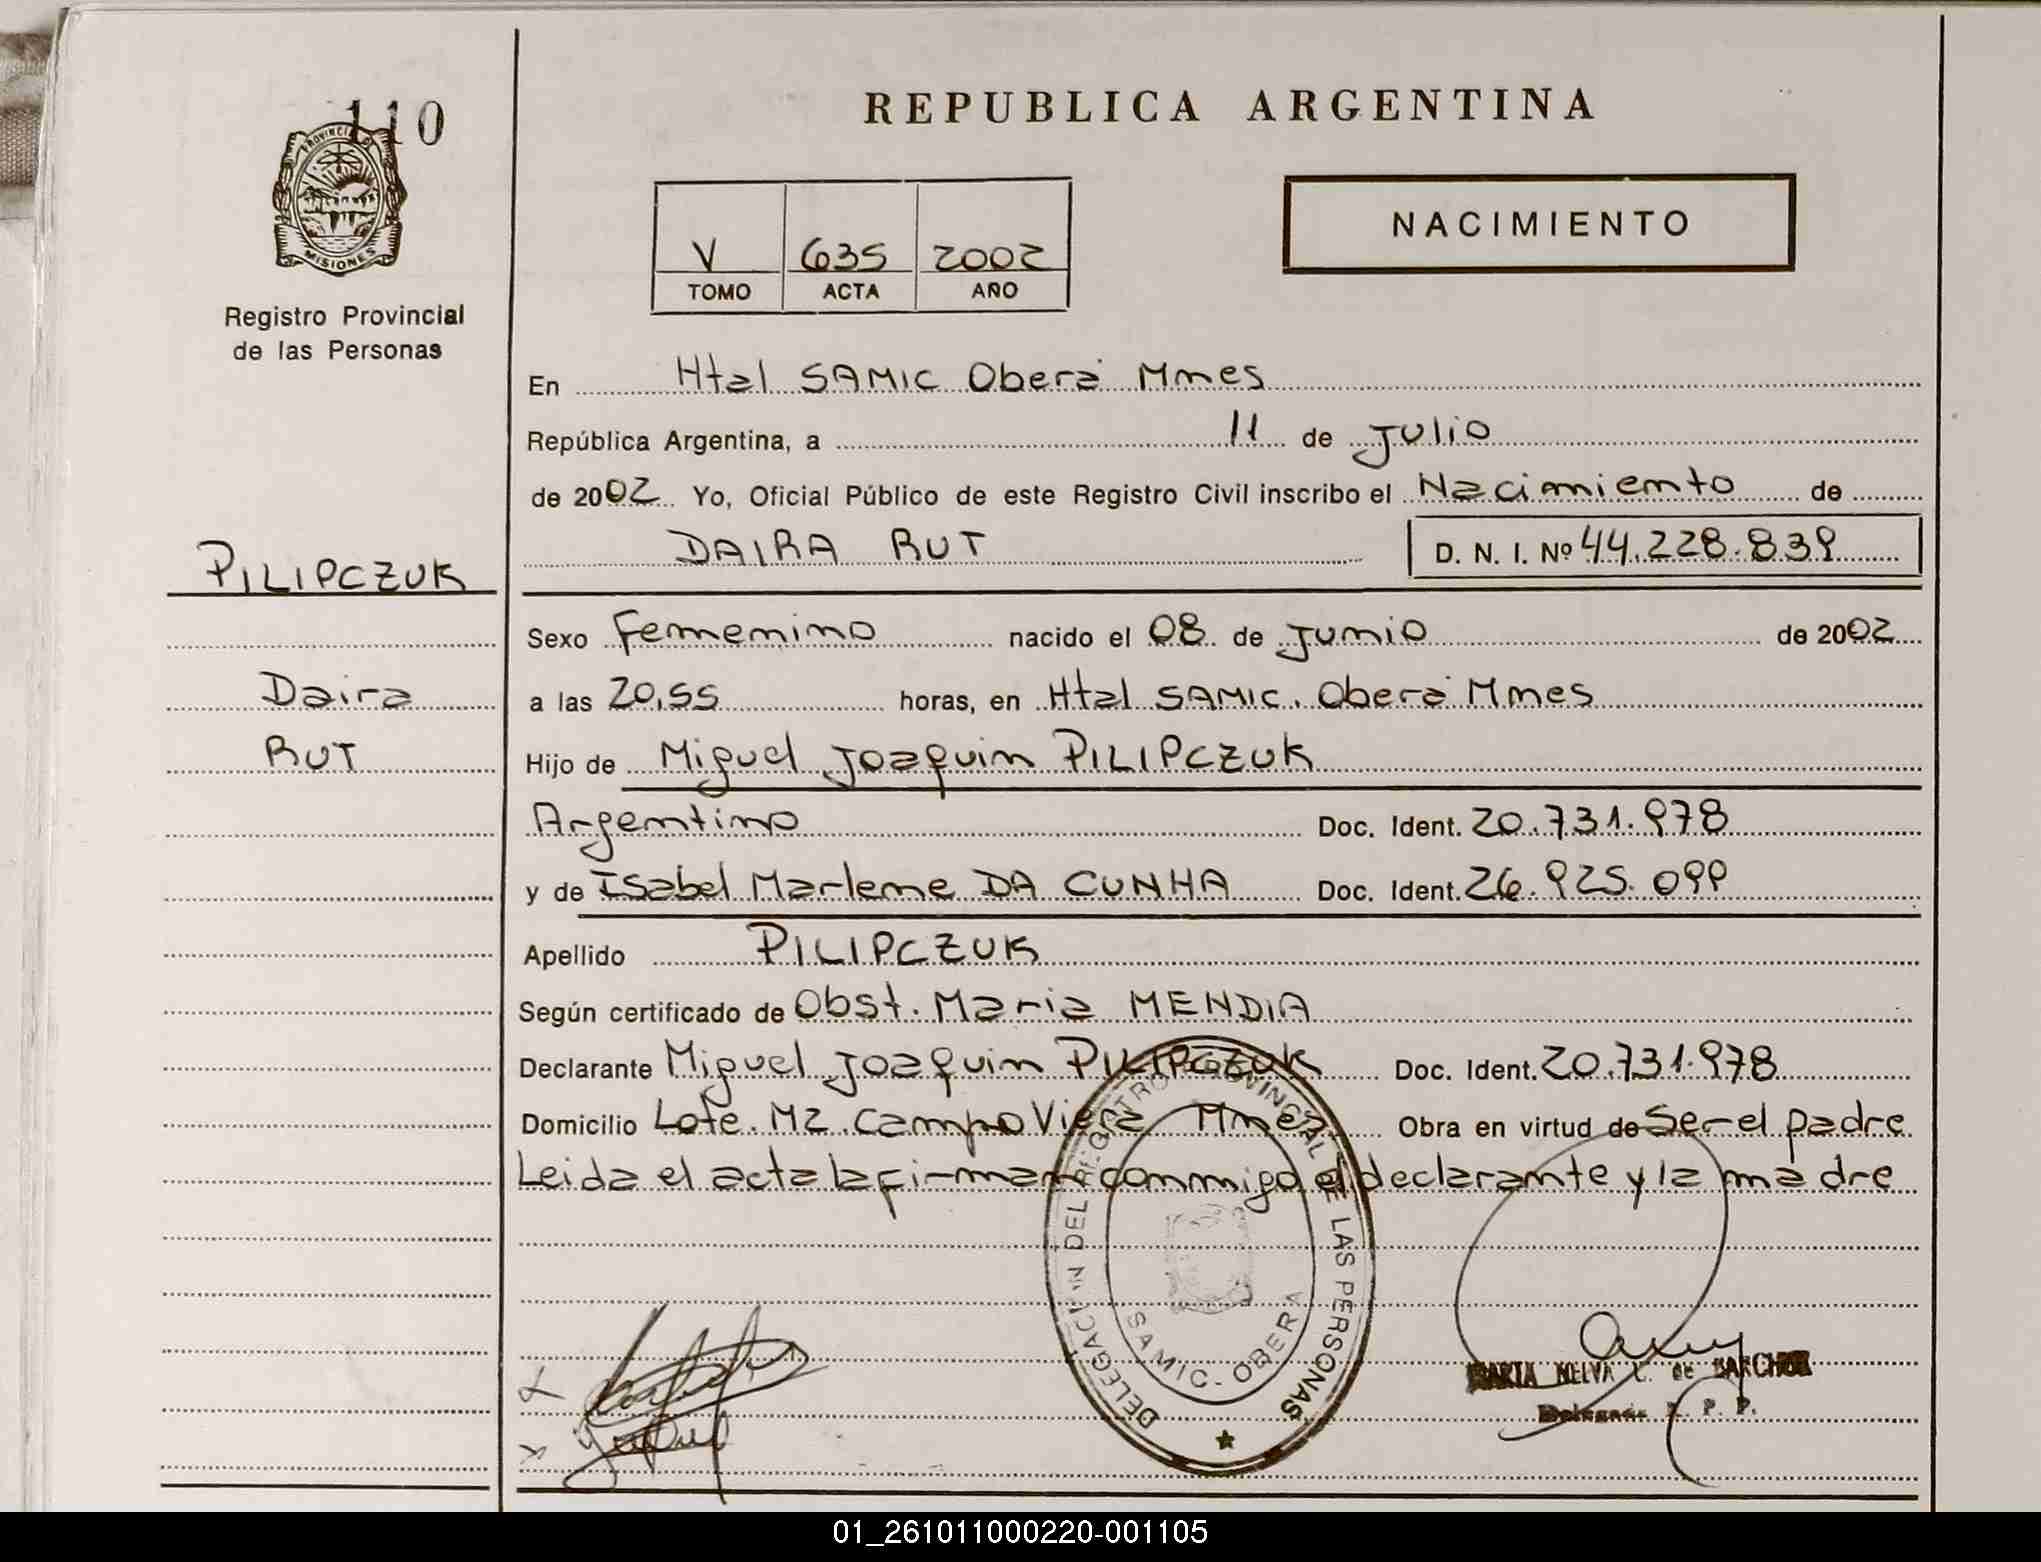 110
PROVINCIA DE
MISIONES
Registro Provincial
de las Personas
REPUBLICA ARGENTINA
NACIMIENTO
V 635 2002
TOMO ACTA AÑO
En Htal SAMIC Oberá Mnes
República Argentina, a 11 de Julio
de 2002 Yo, Oficial Público de este Registro Civil inscribo el Nacimiento de
DAIRA RUT D. N. I. Nº 44.228.839
PILIPCZUK
Daira
RUT
Sexo Femenino nacido el 08 de Junio de 2002
a las 20,55 horas, en Htal SAMIC. Oberá Mnes
Hijo de Miguel Joaquin PILIPCZUK
Argentino Doc. Ident. 20.731.978
y de Isabel Marlene DA CUNHA Doc. Ident. 26.925.099
Apellido PILIPCZUK
Según certificado de Obst. Maria MENDIA
Declarante Miguel Joaquin PILIPCZUK Doc. Ident. 20.731.978
Domicilio Lote. M2 Campo Viera Mnes Obra en virtud de Ser el padre
Leida el acta la firman conmigo el declarante y la madre
DELEGACION DEL REGISTRO PROVINCIAL DE LAS PERSONAS
SAMIC - OBERA
MARIA NELVA C. de
R. P. P.
01_261011000220-001105